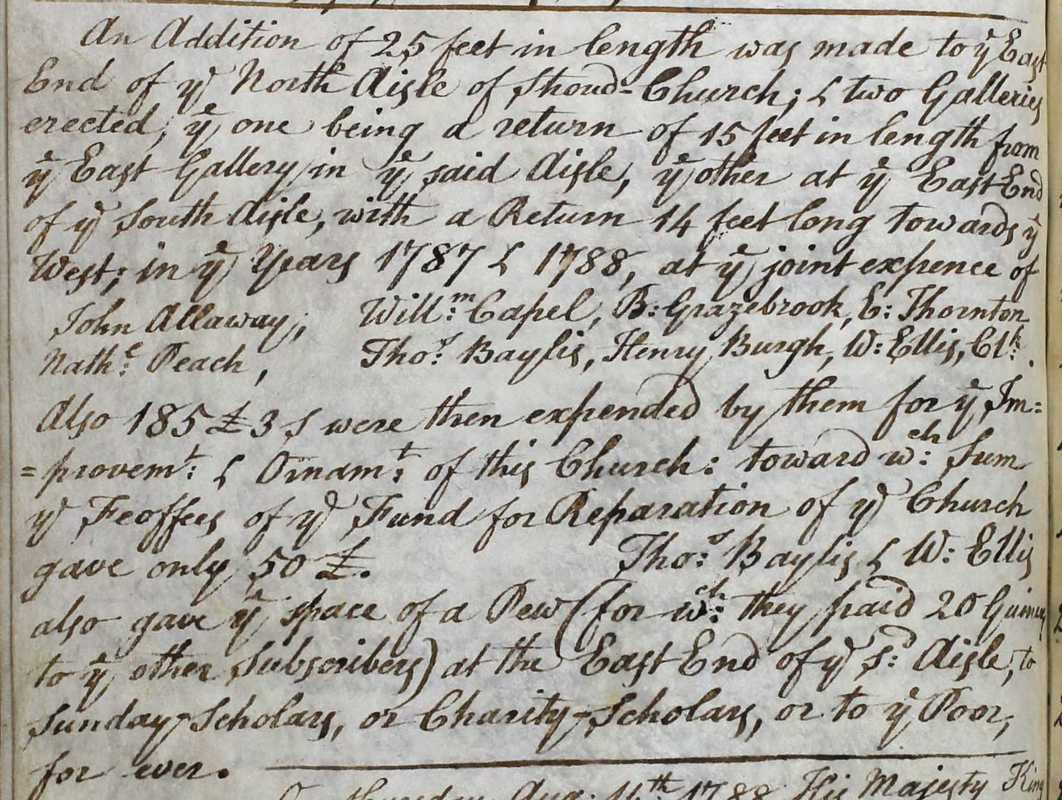 An Addition of 25 feet in length was made to yͤ East
End of yͤ North Aisle of Stroud-Church; & two Galleries
erected, yͤ one being a return of 15 feet in length from
yͤ East Gallery in yͤ said Aisle, yͤ other at yͤ East End
of yͤ South Aisle, with a Return 14 feet long towards yͤ
West; in yͤ Years 1787 & 1788, at yͤ joint expence of
John Allaway, Will:ᵐ Capel, B: Grazebrook, E: Thornton
Nath:ˡ Peach, Tho:ˢ Baylis, Henry Burgh, W: Ellis, Cl:ᵏ.
Also 185£ 3s were then expended by them for yͤ Im=
=provem:ᵗ & Ornam:ᵗ of this Church: toward w:ᶜʰ Sum
yͤ Feoffees of yͤ Fund for Reparation of yͤ Church
gave only 50£. Tho:ˢ Baylis & W: Ellis
also gave yͤ space of a Pew (for w:ᶜʰ they paid 20 Guineas
to yͤ other Subscribers) at the East End of yͤ s:ᵈ Aisle, to
Sunday-Scholars, or Charity-Scholars, or to yͤ Poor,
for ever.
On thursday Aug: 14ᵗʰ 1788 His Majesty King